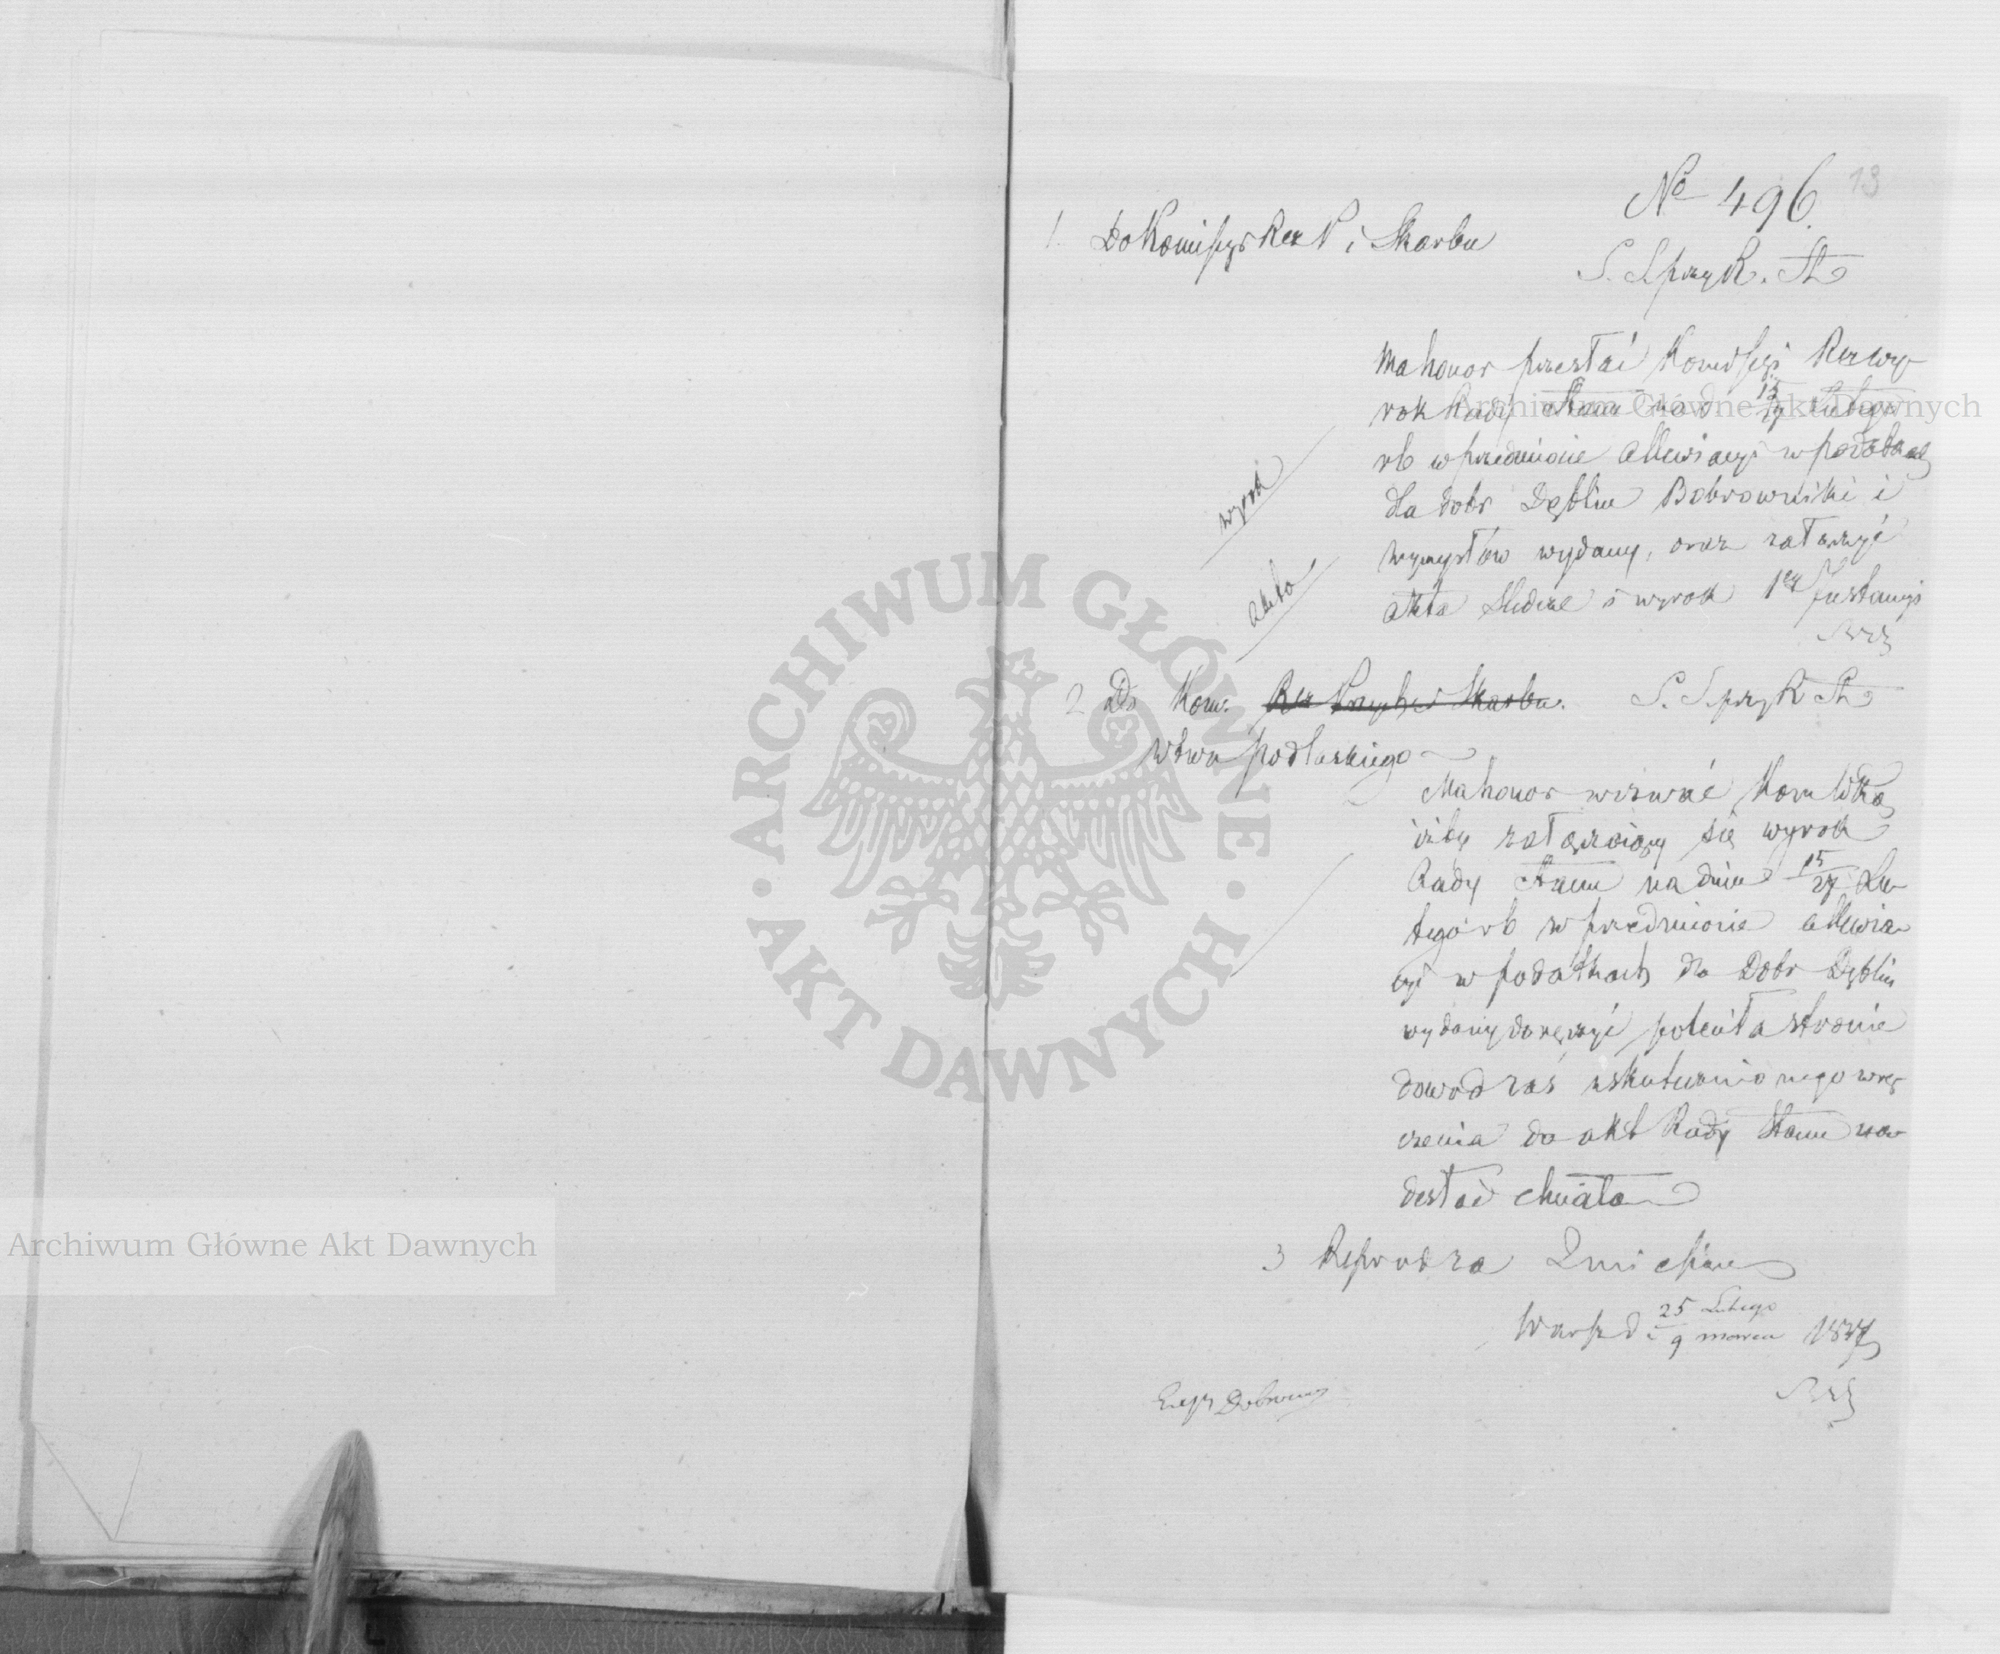 13
№ 496.
1. Do Komissyi Rz P i Skarbu
S. S. przy R. St.
Ma honor przesłać Komissyi Rz wy-
rok Rady Stanu na d 15/27 Lutego
rb w przedmiocie allewiacyi w podatkach
dla dobr Dęblin Bobrowniki i
wymysłów wydany, oraz załączyć
akta śledcze i wyrok 1ej Instancyi
wyrok
akta
2 Do Kom. Rz Przych i Skarbu.
S. S. przy R St
wdwa podlaskiego
Ma honor wezwać Kom Wdką
iżby załączony się wyrok
Rady Stanu na dniu 15/27 Lu-
tego rb w przedmiocie allewia-
cyi w podatkach dla Dobr Dęblin
wydany doręczyć poleciła stronie
dowod zaś uskutecznionego wrę-
czenia do akt Rady Stanu na-
desłać chciała
3 Reprodza
Warsz d. 25 Lutego / 9 marca 1837
Archiwum Główne Akt Dawnych
Archiwum Główne Akt Dawnych
ARCHIWUM GŁÓWNE
AKT DAWNYCH